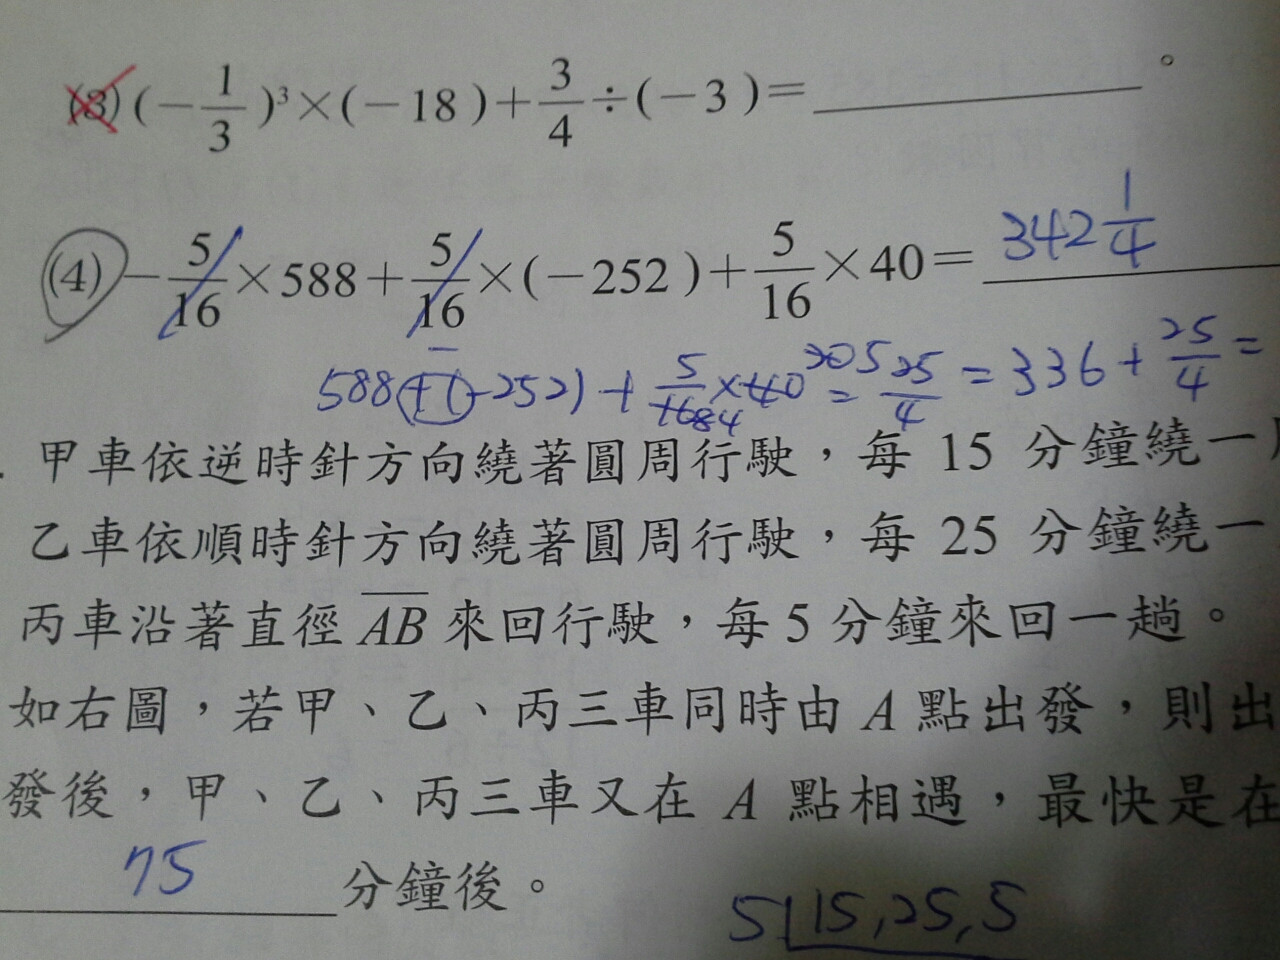 (3) (−1/3)³×(−18)+3/4÷(−3)=＿＿＿＿。
(4) −5/16×588+5/16×(−252)+5/16×40= 342 1/4
588+(-252)+5/16×40=25/4=336+25/4=
甲車依逆時針方向繞著圓周行駛，每 15 分鐘繞一
乙車依順時針方向繞著圓周行駛，每 25 分鐘繞一
丙車沿著直徑 AB 來回行駛，每 5 分鐘來回一趟。
如右圖，若甲、乙、丙三車同時由 A 點出發，則出
發後，甲、乙、丙三車又在 A 點相遇，最快是在
75 分鐘後。
5 15,25,5